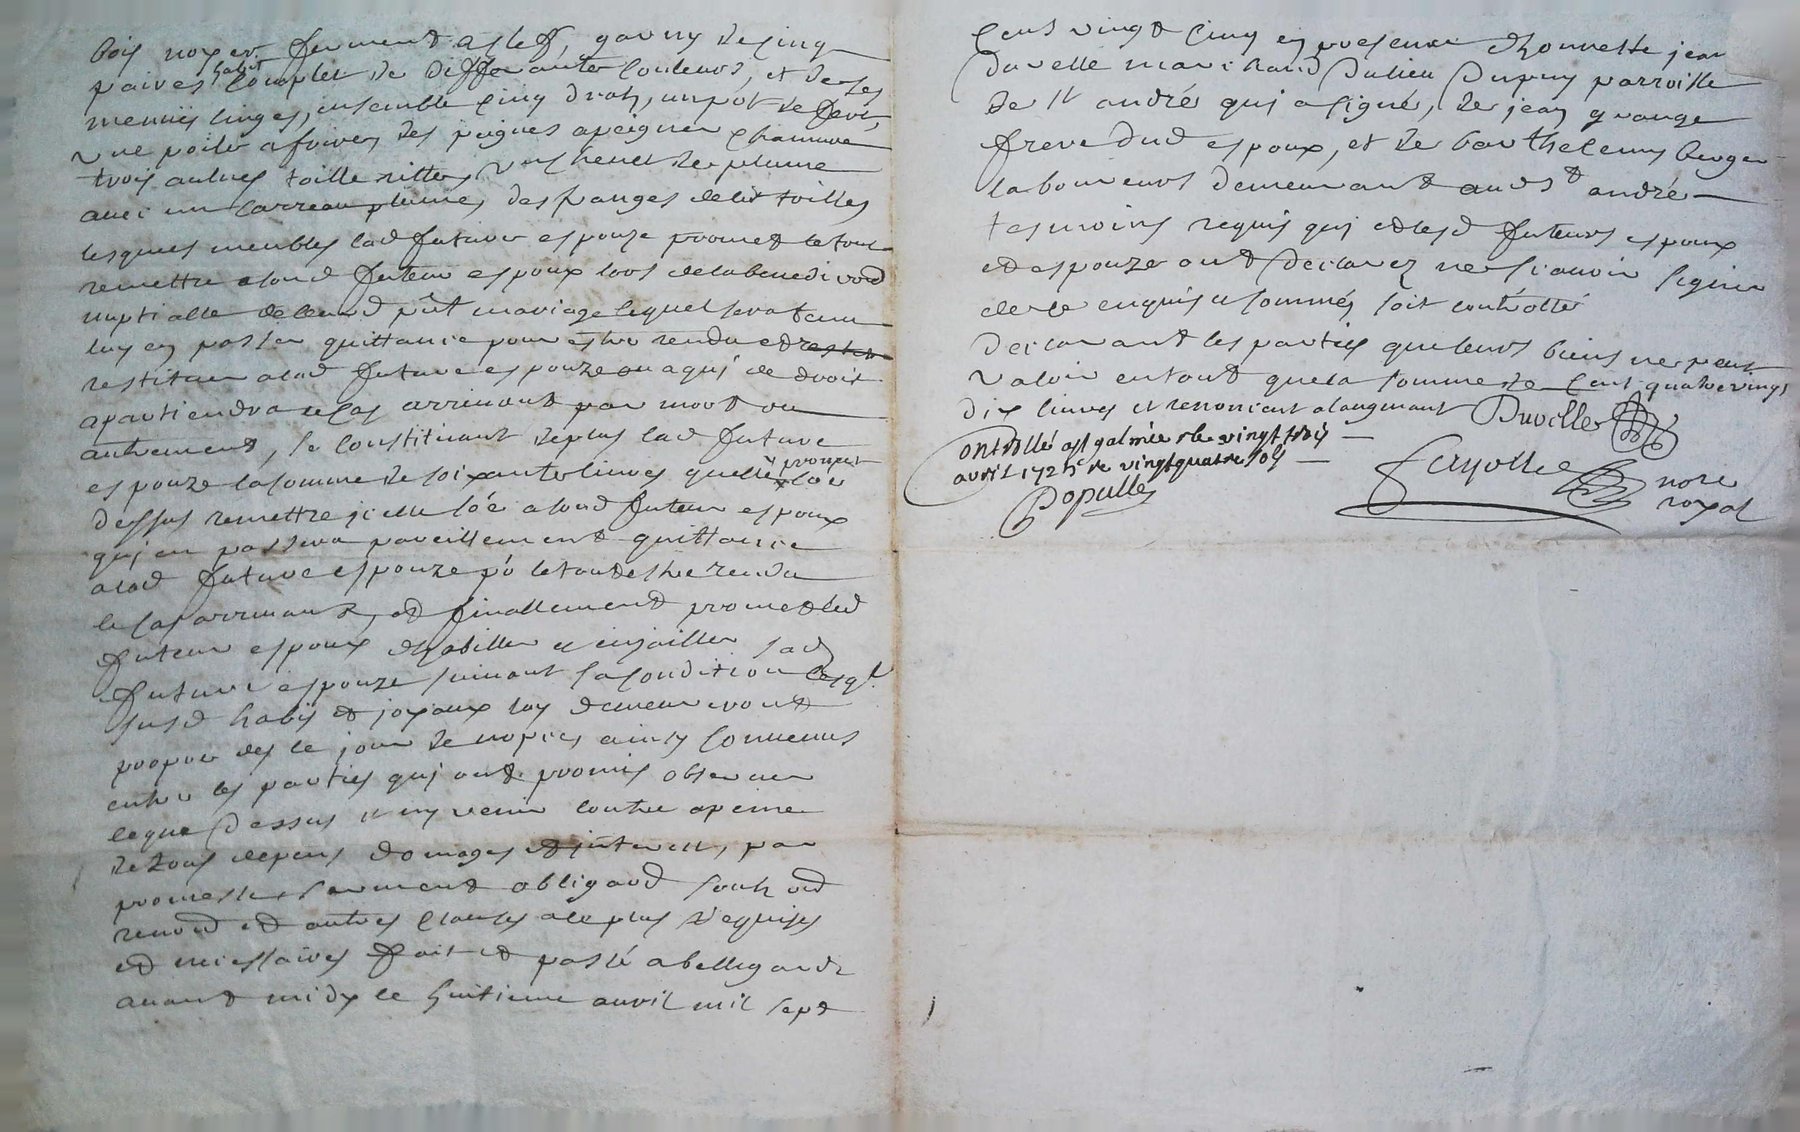 bois noyer fermant a cleff, garny de cinq
paires habit complet de differantes couleurs, et de ses
menues linges, ensemble cinq draps, un pot de fert,
une poile a frire, des peignes a peigner chamvre
trois aulnes toille rittes, de plume
avec un carreau plume, des franges de lit toilles
lesquels meubles lad future espouze promet le tout
remettre aud futeur espoux lors de la benedi on
nuptialle de leurd pnt mariage lequel sera tenu
luy en passer quittance pour estre rendu et
restituer a lad future espouze ou a qui de droit
apartiendra le cas arrivant par mort ou
autrement, se constituant de plus lad future
espouze la somme de soixante livres quelle promet
dessus remettre icelle so'e aud futeur espoux
qui en passera pareillement quittance
a lad future espouze po' le tout estre rendu
le cas arrivant, et finallement promet led
futeur espoux dhabiller et enjoailler lad
future espouze suivant sa condition lesqls
susd habis et joyaux luy demeureront
propres des le jour de nopces ainsy convenus
entre les parties qui ont promis observer
le que dessus et ny venir contre a peine
de tous depens domages et interest, par
promesse, serment obligaon soub on
renon et autres clauses a ce plus requises
et necessaires fait et passé a bellegarde
avant midy le huitieme avril mil sept
cens vingt cinq en presence dhonneste jean
Duvelle marchand du lieu Dupuy parroisse
de st andré qui a signé, de jean grange
frere dud espoux, et de barthelemy berger
laboureurs demeurant aud st andré
tesmoins requis qui et lesd futeurs espoux
et espouze ont declarez ne scavoir signer
de ce enquis et sommés soit controllé
declarant les parties que leurs biens ne peuvt
valoir en tout que la somme de cent quatre vings
dix livres et renoncent a laugmant Duvelle
Controllé a st galmier le vingt trois
avril 1725 Re vingt quatre sols
Populle
Fayolle nore
royal